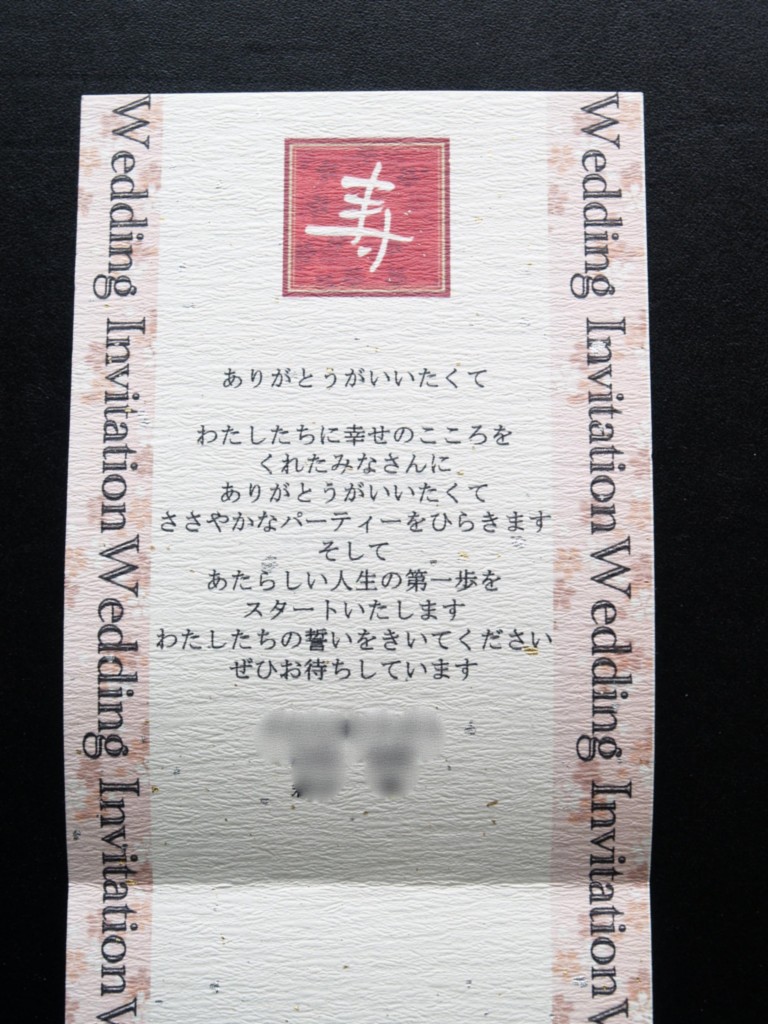 寿
ありがとうがいいたくて
わたしたちに幸せのこころを
くれたみなさんに
ありがとうがいいたくて
ささやかなパーティーをひらきます
そして
あたらしい人生の第一歩を
スタートいたします
わたしたちの誓いをきいてください
ぜひお待ちしています
Wedding Invitation Wedding Invitation W
Wedding Invitation Wedding Invitation W